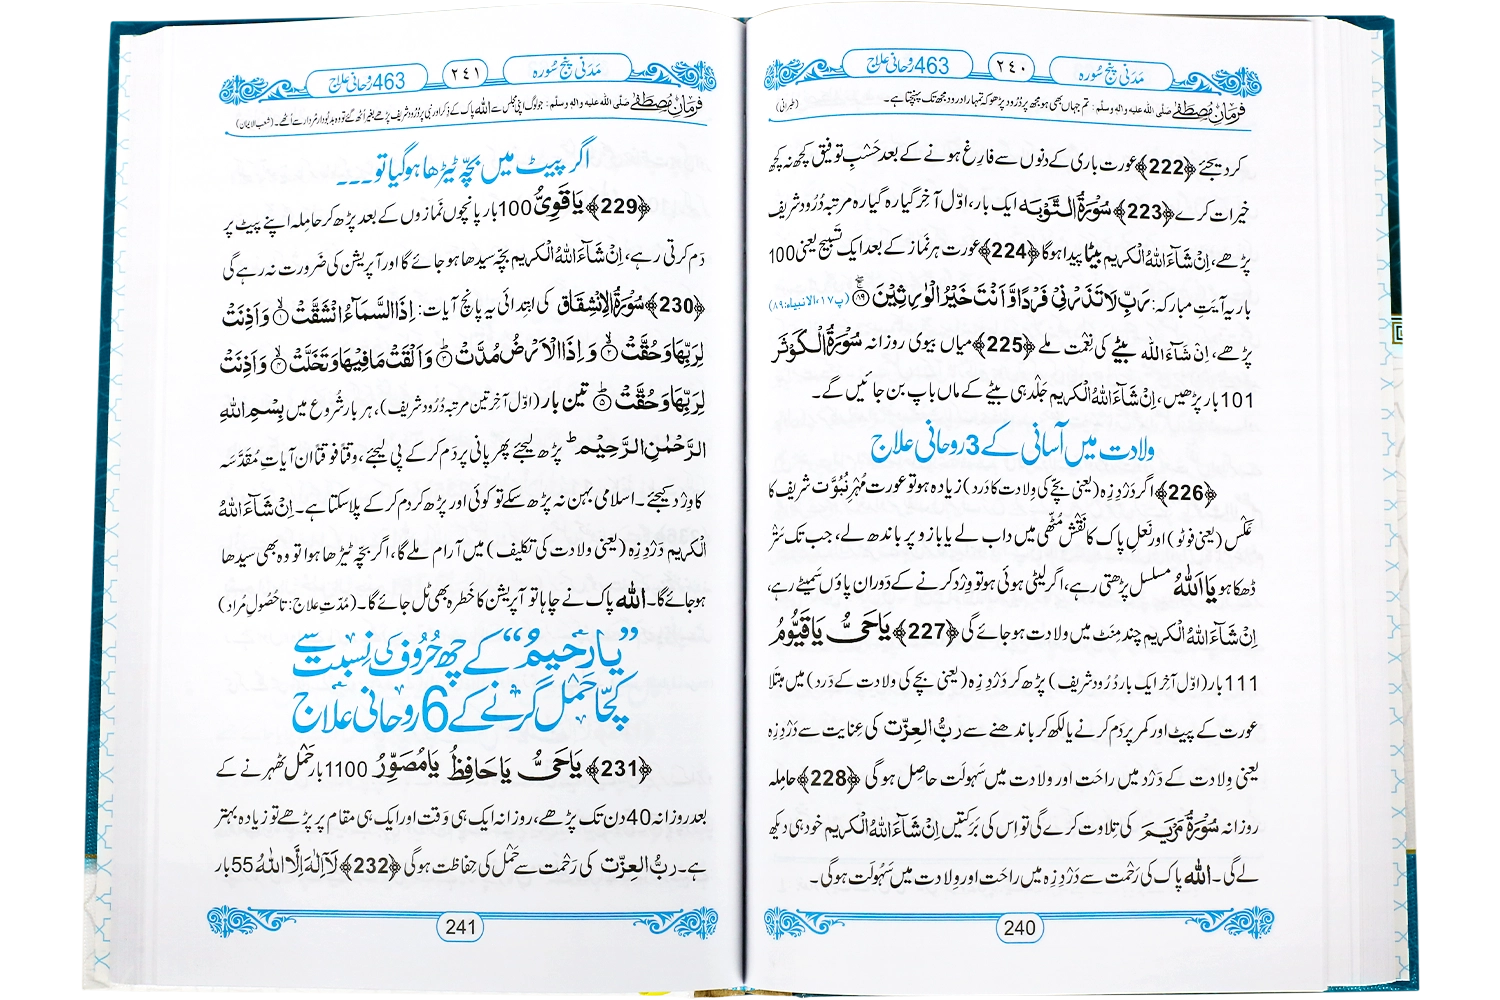 مَدَنی پنج سُورہ
۲٤۰
463 رُوحانی علاج
فرمانِ مُصطَفٰے صلی اللہ علیہ والہٖ وسلم: تم جہاں بھی ہو مجھ پر دُرُود پڑھو کہ تمہارا درود مجھ تک پہنچتا ہے۔ (طبرانی)
کر دیجئے ﴿222﴾ عورت باری کے دنوں سے فارِغ ہونے کے بعد حَسْبِ توفیق کچھ نہ کچھ
خیرات کرے ﴿223﴾ سُوْرَۃُ التَّوْبَہ ایک بار، اوّل آخِر گیارہ گیارہ مرتبہ دُرُود شریف
پڑھے، اِنْ شَآءَ اللہُ الْکَرِیم بیٹا پیدا ہوگا ﴿224﴾ عورت ہر نَماز کے بعد ایک تَسبیح یعنی 100
بار یہ آیتِ مبارکہ: رَبِّ لَا تَذَرْنِیْ فَرْدًا وَّ اَنْتَ خَیْرُ الْوٰرِثِیْنَ ﴿۸۹﴾ (پ۱۷، الانبیاء: ۸۹)
پڑھے، اِنْ شَآءَ اللہ بیٹے کی نِعْمت ملے ﴿225﴾ میاں بیوی روزانہ سُوْرَۃُ الْکَوْثَر
101 بار پڑھیں، اِنْ شَآءَ اللہُ الْکَرِیم جَلْد ہی بیٹے کے ماں باپ بن جائیں گے۔
ولادت میں آسانی کے 3 روحانی علاج
﴿226﴾ اگر دَرْدِ زِہ (یعنی بچّے کی وِلادت کا دَرد) زیادہ ہو تو عورت مُہْرِ نُبُوَّت شریف کا
عَکْس (یعنی فوٹو) اور نَعلِ پاک کا نَقْش مُٹّھی میں داب لے یا بازو پر باندھ لے، جب تک سَتْر
ڈھکا ہو یَا اَللہُ مسلسل پڑھتی رہے، اگر لیٹی ہوئی ہو تو وِرْد کرنے کے دَوران پاؤں سَمیٹے رہے،
اِنْ شَآءَ اللہُ الْکَرِیم چند مِنَٹ میں ولادت ہوجائے گی ﴿227﴾ یَاحَیُّ یَاقَیُّومُ
111 بار (اوّل آخر ایک بار دُرُود شریف) پڑھ کر دَرْدِ زِہ (یعنی بچے کی ولادت کے دَرد) میں مبتلا
عورت کے پیٹ اور کمر پر دَم کرنے یا لکھ کر باندھنے سے ربُّ العِزّت کی عِنایت سے دَرْدِ زِہ
یعنی ولادت کے دَرْد میں راحت اور ولادت میں سَہولت حاصِل ہوگی ﴿228﴾ حامِلہ
روزانہ سُوْرَۃُ مَرْیَم کی تِلاوت کرے گی تو اِس کی بَرَکتیں اِنْ شَآءَ اللہُ الْکَرِیم خود ہی دیکھ
لے گی۔ اللہ پاک کی رَحْمت سے دَرْدِ زِہ میں راحت اور وِلادت میں سَہُولَت ہوگی۔
240
مَدَنی پنج سُورہ
۲٤۱
463 رُوحانی علاج
فرمانِ مُصطَفٰے صلی اللہ علیہ والہٖ وسلم: جو لوگ اپنی مجلس سے اللہ پاک کے ذِکر اور نبی پر دُرُود شریف پڑھے بغیر اُٹھ گئے تو وہ بدبودار مُردار سے اُٹھے۔ (شعب الایمان)
اگر پیٹ میں بچّہ ٹیڑھا ہو گیا تو۔۔۔
﴿229﴾ یَاقَوِیُّ 100 بار پانچوں نَمازوں کے بعد پڑھ کر حامِلہ اپنے پیٹ پر
دَم کرتی رہے، اِنْ شَآءَ اللہُ الْکَرِیم بچّہ سیدھا ہو جائے گا اور آپریشن کی ضَرورت نہ رہے گی
﴿230﴾ سُوْرَۃُ الْاِنْشِقَاق کی ابتدائی یہ پانچ آیات: اِذَا السَّمَآءُ انْشَقَّتْ ۙ﴿۱﴾ وَ اَذِنَتْ
لِرَبِّہَا وَ حُقَّتْ ۙ﴿۲﴾ وَ اِذَا الْاَرْضُ مُدَّتْ ۙ﴿۳﴾ وَ اَلْقَتْ مَا فِیْہَا وَ تَخَلَّتْ ۙ﴿۴﴾ وَ اَذِنَتْ
لِرَبِّہَا وَ حُقَّتْ ؕ﴿۵﴾ تین بار (اوّل آخِر تین مرتبہ دُرُود شریف)، ہر بار شُروع میں بِسْمِ اللہِ
الرَّحْمٰنِ الرَّحِیْمِ ؕ پڑھ لیجئے پھر پانی پر دَم کر کے پی لیجئے، وقتاً فوقتاً ان آیاتِ مُقَدَّسَہ
کا وِرْد کیجئے۔ اسلامی بہن نہ پڑھ سکے تو کوئی اور پڑھ کر دم کر کے پلا سکتا ہے۔ اِنْ شَآءَ اللہُ
الْکَرِیم دَرْدِ زِہ (یعنی ولادت کی تکلیف) میں آرام ملے گا، اگر بچّہ ٹیڑھا ہوا تو وہ بھی سیدھا
ہو جائے گا۔ اللہ پاک نے چاہا تو آپریشن کا خطرہ بھی ٹل جائے گا۔ (مُدّتِ علاج: تا حُصُولِ مُراد)
”یارَحِیمُ“ کے چھ حُرُوف کی نِسبت سے
کچّا حَمْل گرنے کے 6 روحانی علاج
﴿231﴾ یَاحَیُّ یَاحَافِظُ یَامُصَوِّرُ 1100 بار حَمْل ٹھہرنے کے
بعد روزانہ 40 دن تک پڑھے، روزانہ ایک ہی وَقت اور ایک ہی مقام پر پڑھے تو زیادہ بہتر
ہے۔ ربُّ العِزّت کی رَحْمت سے حَمْل کی حِفاظت ہوگی ﴿232﴾ لَآ اِلٰہَ اِلَّا اللہُ 55 بار
241